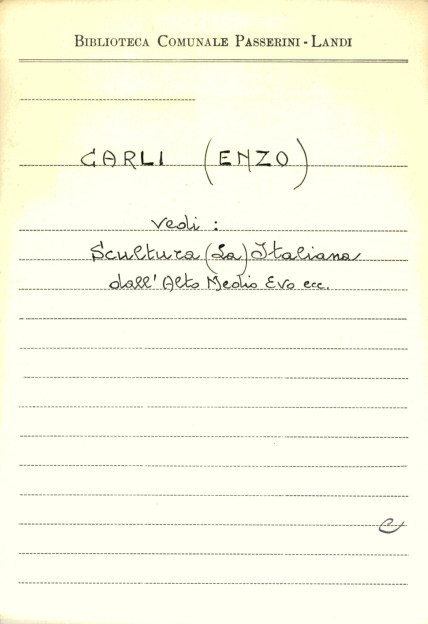 BIBLIOTECA COMUNALE PASSERINI - LANDI
CARLI (ENZO)
vedi :
Scultura (La) Italiana
dall' Alto Medio Evo ecc.
C